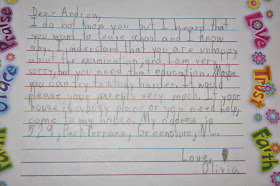 Dear Andrew,
I do not know you but I heard that
you want to leave school and I know
why. I understand that you are unhappy
about the examination, and I am very
sorry, but you need that education. Maybe
you can try to study harder. It would
please your parents very much. If your
house is a busy place or you need help,
come to my house. My address is
529, Terrane, Greensburg, N.C.
Love,
Olivia
Praise
Grace
Faith
Love
Truth